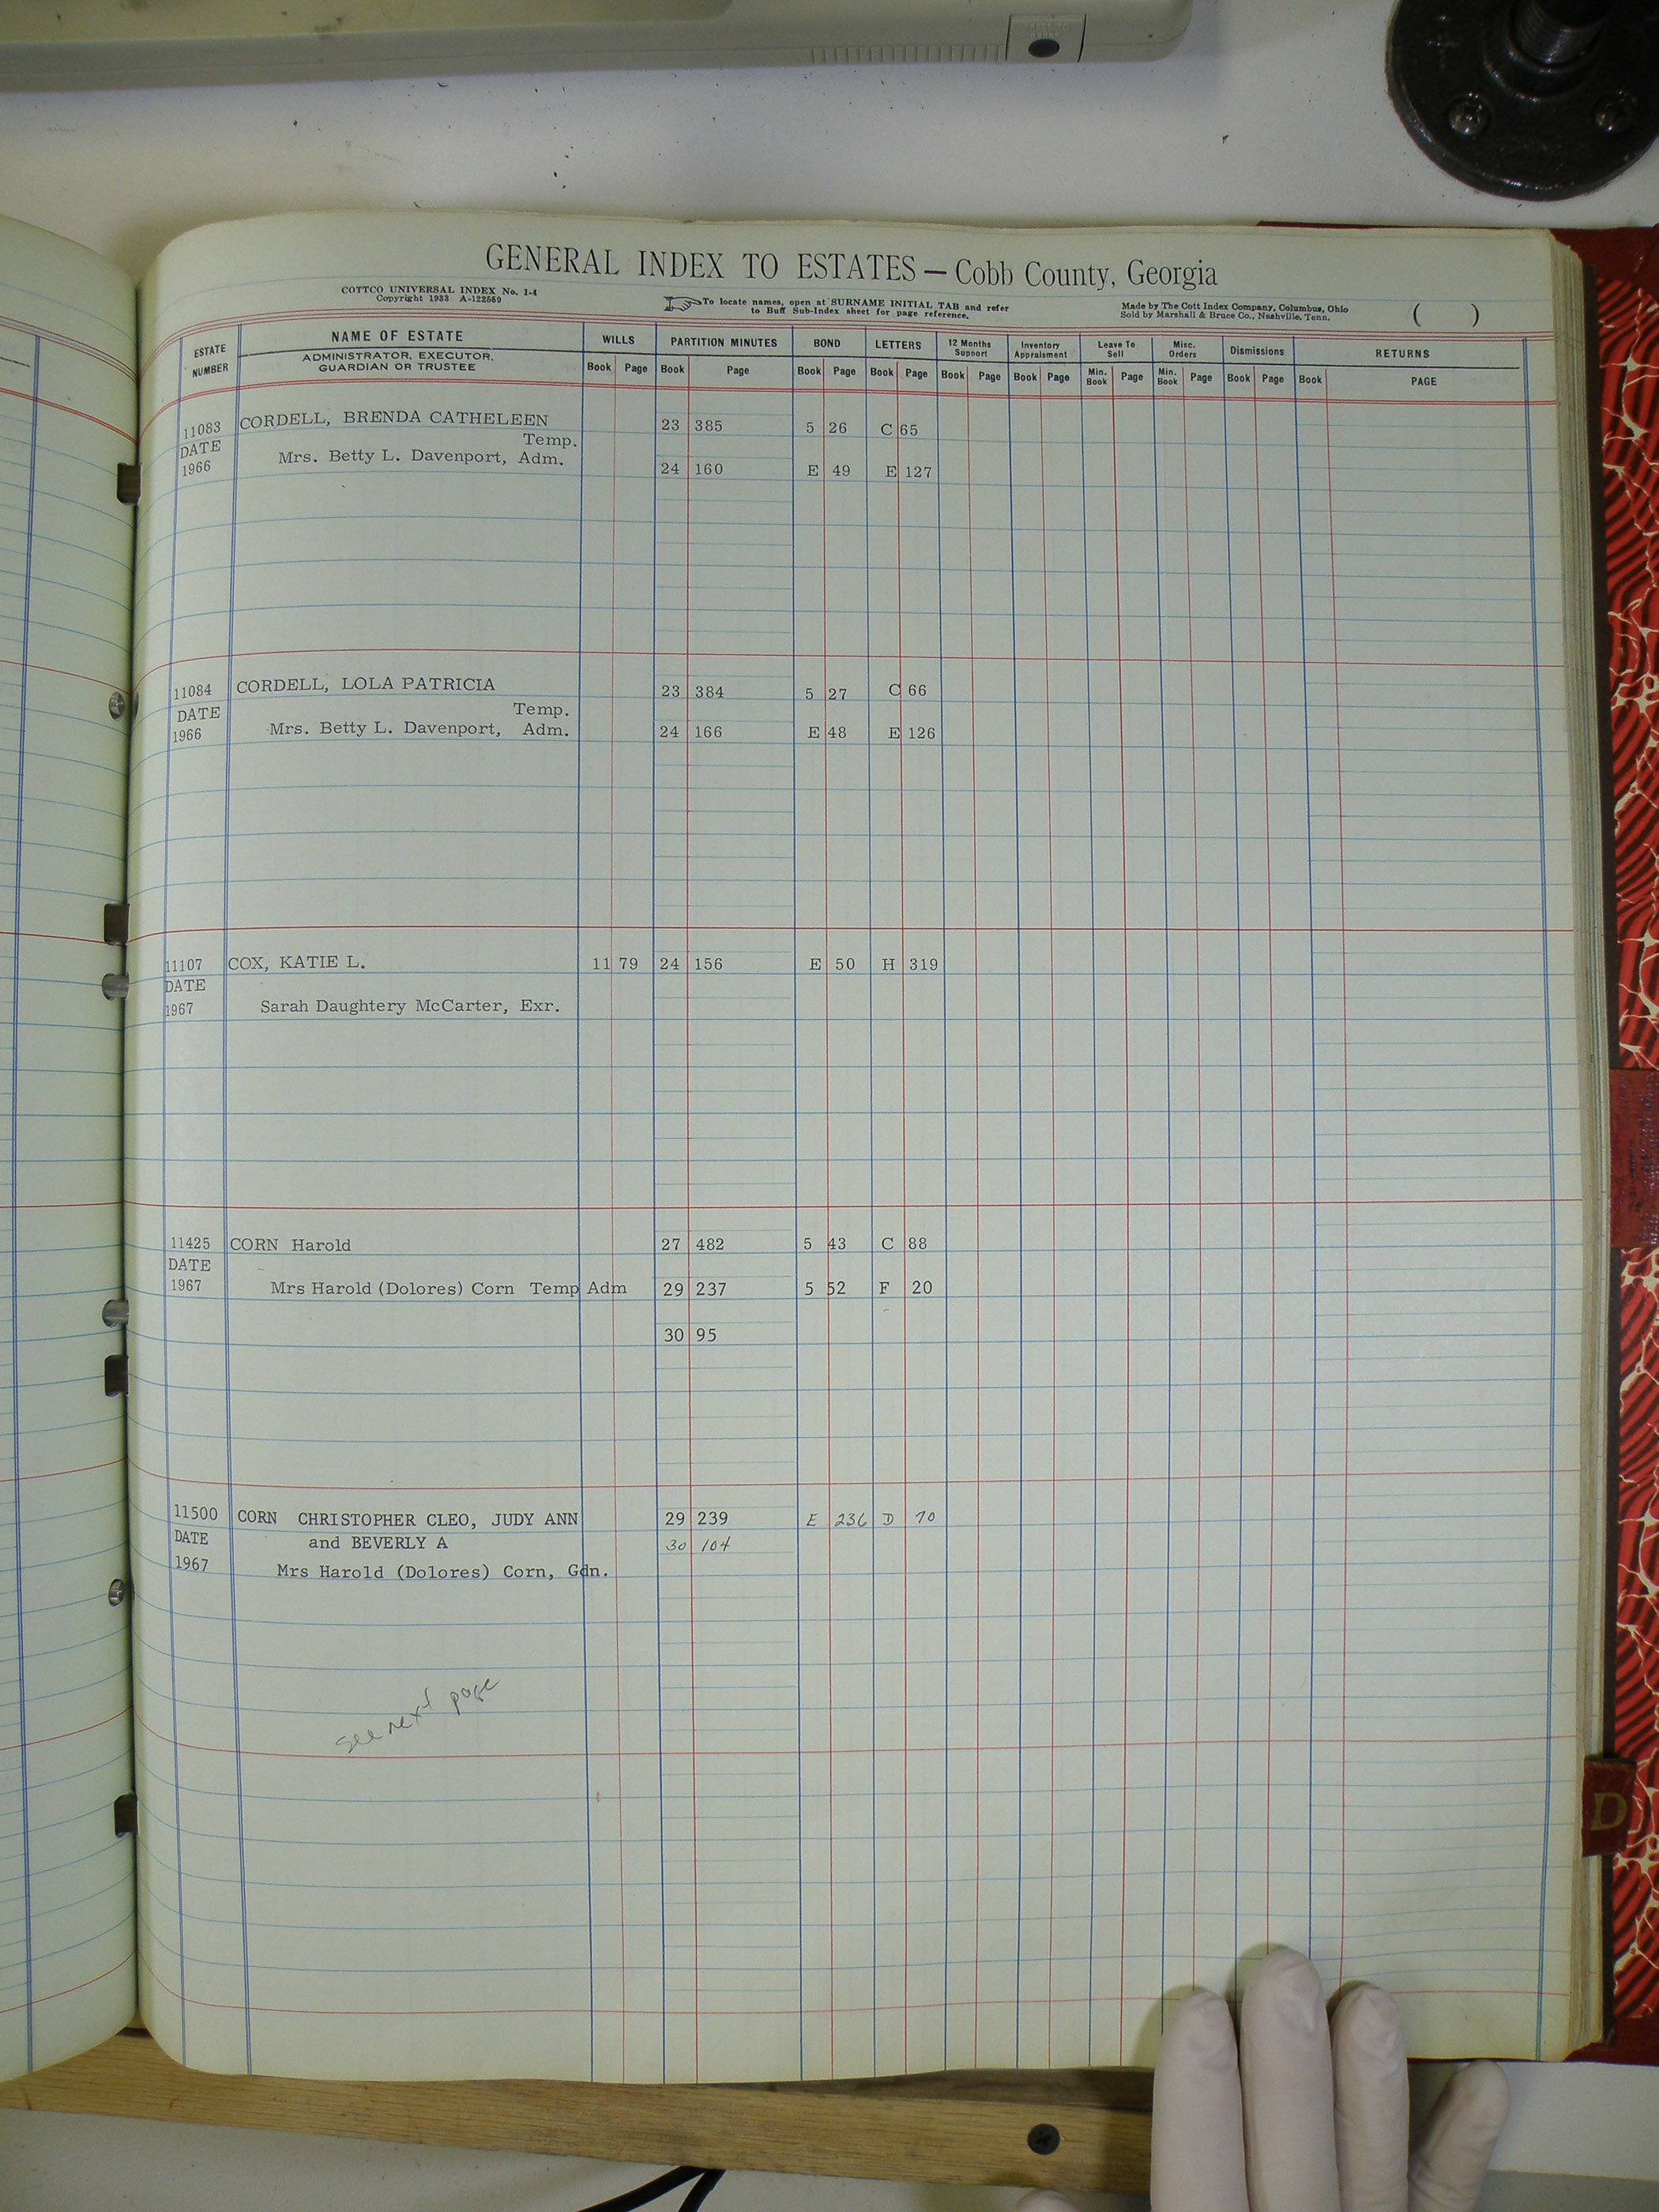 GENERAL INDEX TO ESTATES — Cobb County, Georgia
COTTCO UNIVERSAL INDEX No. 1-4
Copyright 1933 A-122559
To locate names, open at SURNAME INITIAL TAB and refer
to Buff Sub-Index sheet for page reference.
Made by The Cott Index Company, Columbus, Ohio
Sold by Marshall & Bruce Co., Nashville, Tenn.
( )
ESTATE NUMBER
NAME OF ESTATE
ADMINISTRATOR, EXECUTOR,
GUARDIAN OR TRUSTEE
WILLS PARTITION MINUTES BOND LETTERS 12 Months Support Inventory Appraisment Leave To Sell Misc. Orders Dismissions RETURNS
Book Page Book Page Book Page Book Page Book Page Book Page Min. Book Page Min. Book Page Book Page Book PAGE
11083 CORDELL, BRENDA CATHELEEN 23 385 5 26 C 65
DATE Temp.
1966 Mrs. Betty L. Davenport, Adm. 24 160 E 49 E 127
11084 CORDELL, LOLA PATRICIA 23 384 5 27 C 66
DATE Temp.
1966 Mrs. Betty L. Davenport, Adm. 24 166 E 48 E 126
11107 COX, KATIE L. 11 79 24 156 E 50 H 319
DATE
1967 Sarah Daughtery McCarter, Exr.
11425 CORN Harold 27 482 5 43 C 88
DATE
1967 Mrs Harold (Dolores) Corn Temp Adm 29 237 5 52 F 20
30 95
11500 CORN CHRISTOPHER CLEO, JUDY ANN 29 239 E 236 D 70
DATE and BEVERLY A 30 104
1967 Mrs Harold (Dolores) Corn, Gdn.
see next page
D